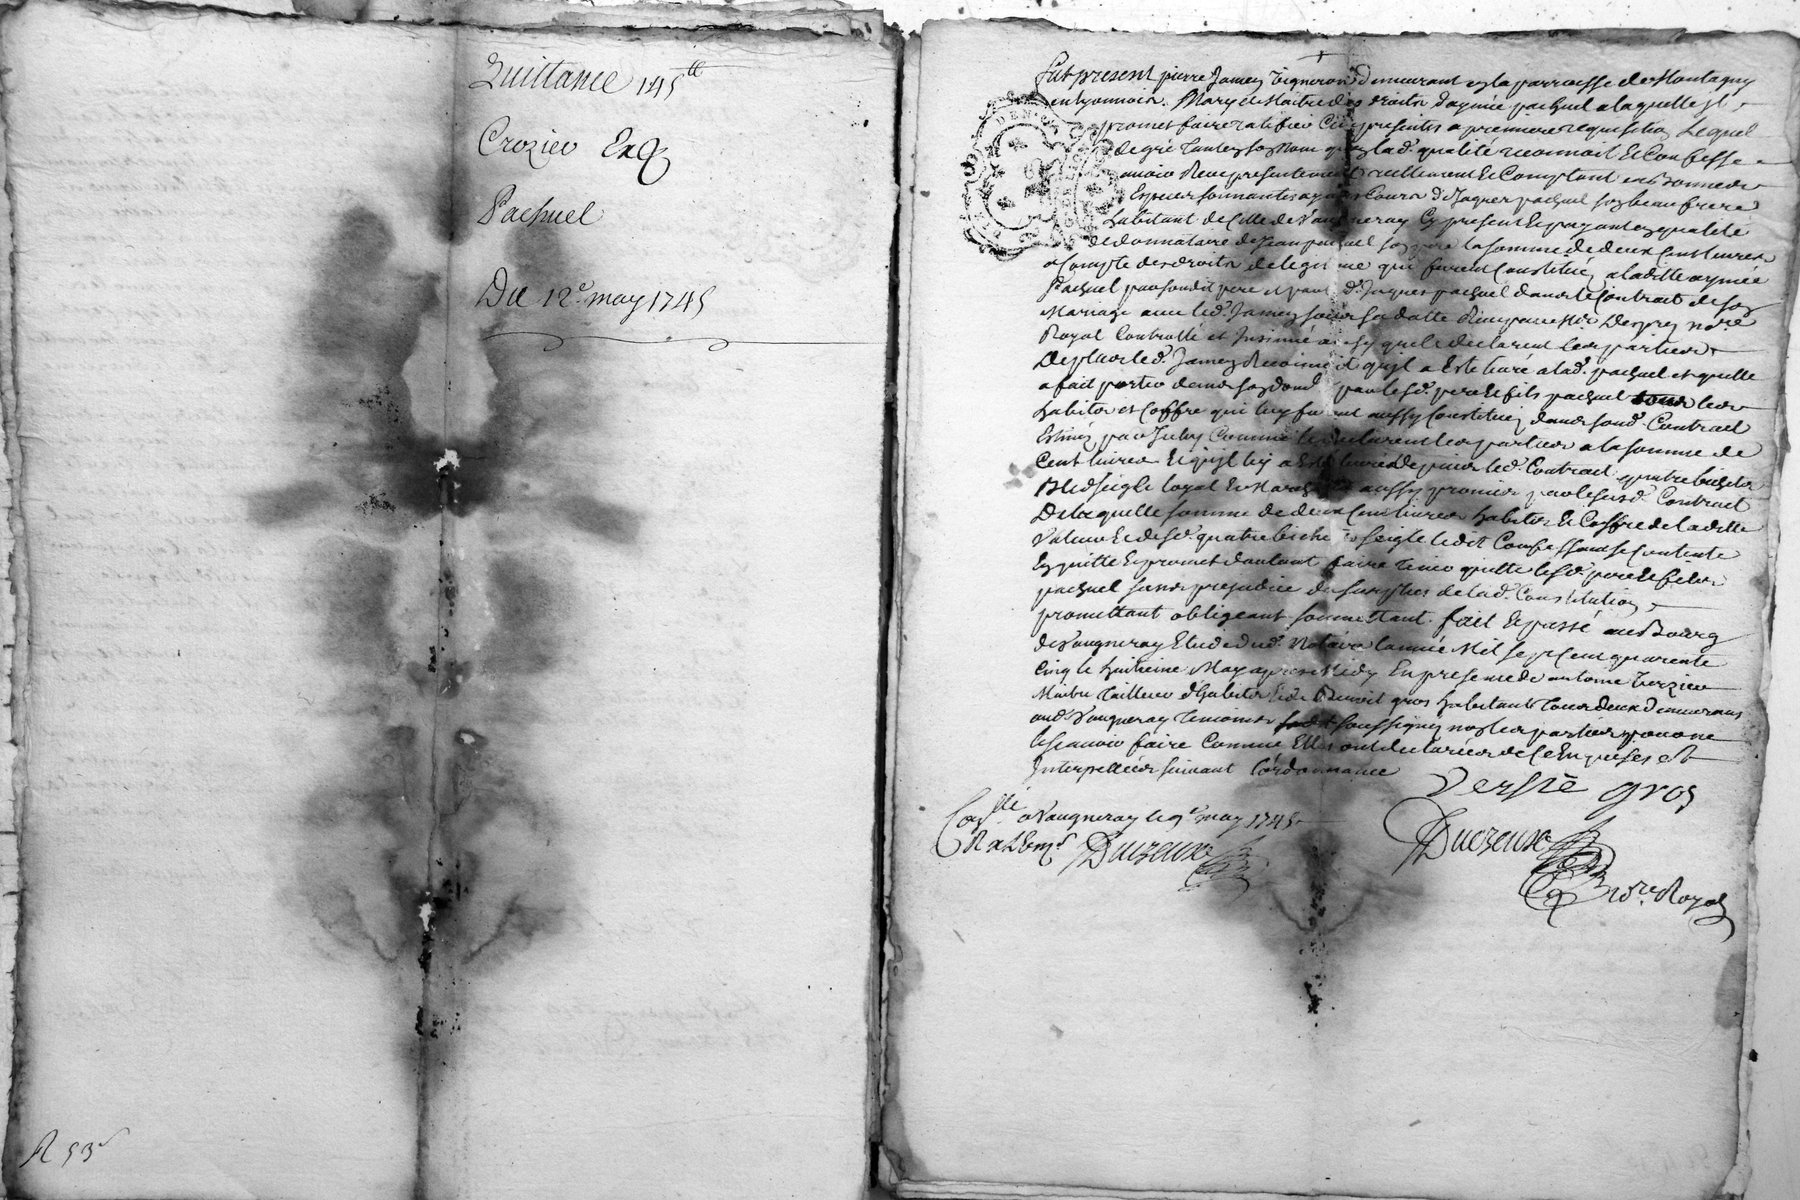 Quittance 145tt
Crozier Exq
Pachuel
Du 12e may 1745
R 53s
Fut present pierre Jamey vigneron demeurant en la parroisse de Montagny
en Lyonnois. Mary et Maitre des droits d'aymée pachuel a laquelle Il
promet faire ratifier Ces presentes a premiere requisition Lequel
de gré tant en son nom qu'en lad. qualité reconnoit Et Confesse
avoir Receu presentement reellement Et Comptant en bonnes
Especes sonnantes ayant Cours de Jaques pachuel son beau frere
habitant de Celle de Vaugneray Cy present Et payant en qualité
de donnataire de Jean pachuel son pere la somme de deux Cent livres
a Compte des droits de legitime qui furent Constitués a laditte aymée
Pachuel par sondit pere et par led. Jaques pachuel dans le Contrat de son
Mariage avec led. Jamey sous sa datte Receu par Me Desprez nore
Royal Controllé et Insinué ainsy que le declarent les parties
De plus led. Jamey Reconnoit qu'il a Esté livré a lad. pachuel et qu'elle
a fait porter dans son dom. par lesd. pere Et fils pachuel les
habits et Coffre qui luy furent aussy Constitués dans sond. Contract
Estimés par Iceluy Comme le declarent les parties a la somme de
Cent livres Et qu'il luy a Esté livré depuis led. Contract quatre bichets
Bled seigle loyal Et Marchand aussy promis par le susd. Contract
De laquelle somme de deux Cent livres habits Et Coffre de laditte
Valeur Et desd. quatre bichets seigle ledit Confessant se Contente
En quitte Et promet d'autant faire tenir quitte lesd. pere Et fils
pachuel sans prejudice du surplus de lad. Constitution
promettant obligeant soumettant. fait Et passé au Bourg
de Vaugneray Etude dud. Notaire l'année Mil sept Cent quarente
Cinq le huitieme May apres Midy En presence de antoine Verzier
Maitre Tailleur d'habits Et de Benoit gros habitants tous deux demeurans
aud. Vaugneray temoins soussignés non les parties pour ne
le scavoir faire Comme Elles ont declaré de Ce Enquises et
Interpellées suivant l'ordonnance
Versie gros
Conllé a Vaugneray le 9e may 1745
Ducreuse
Ducreuse
nore Royal